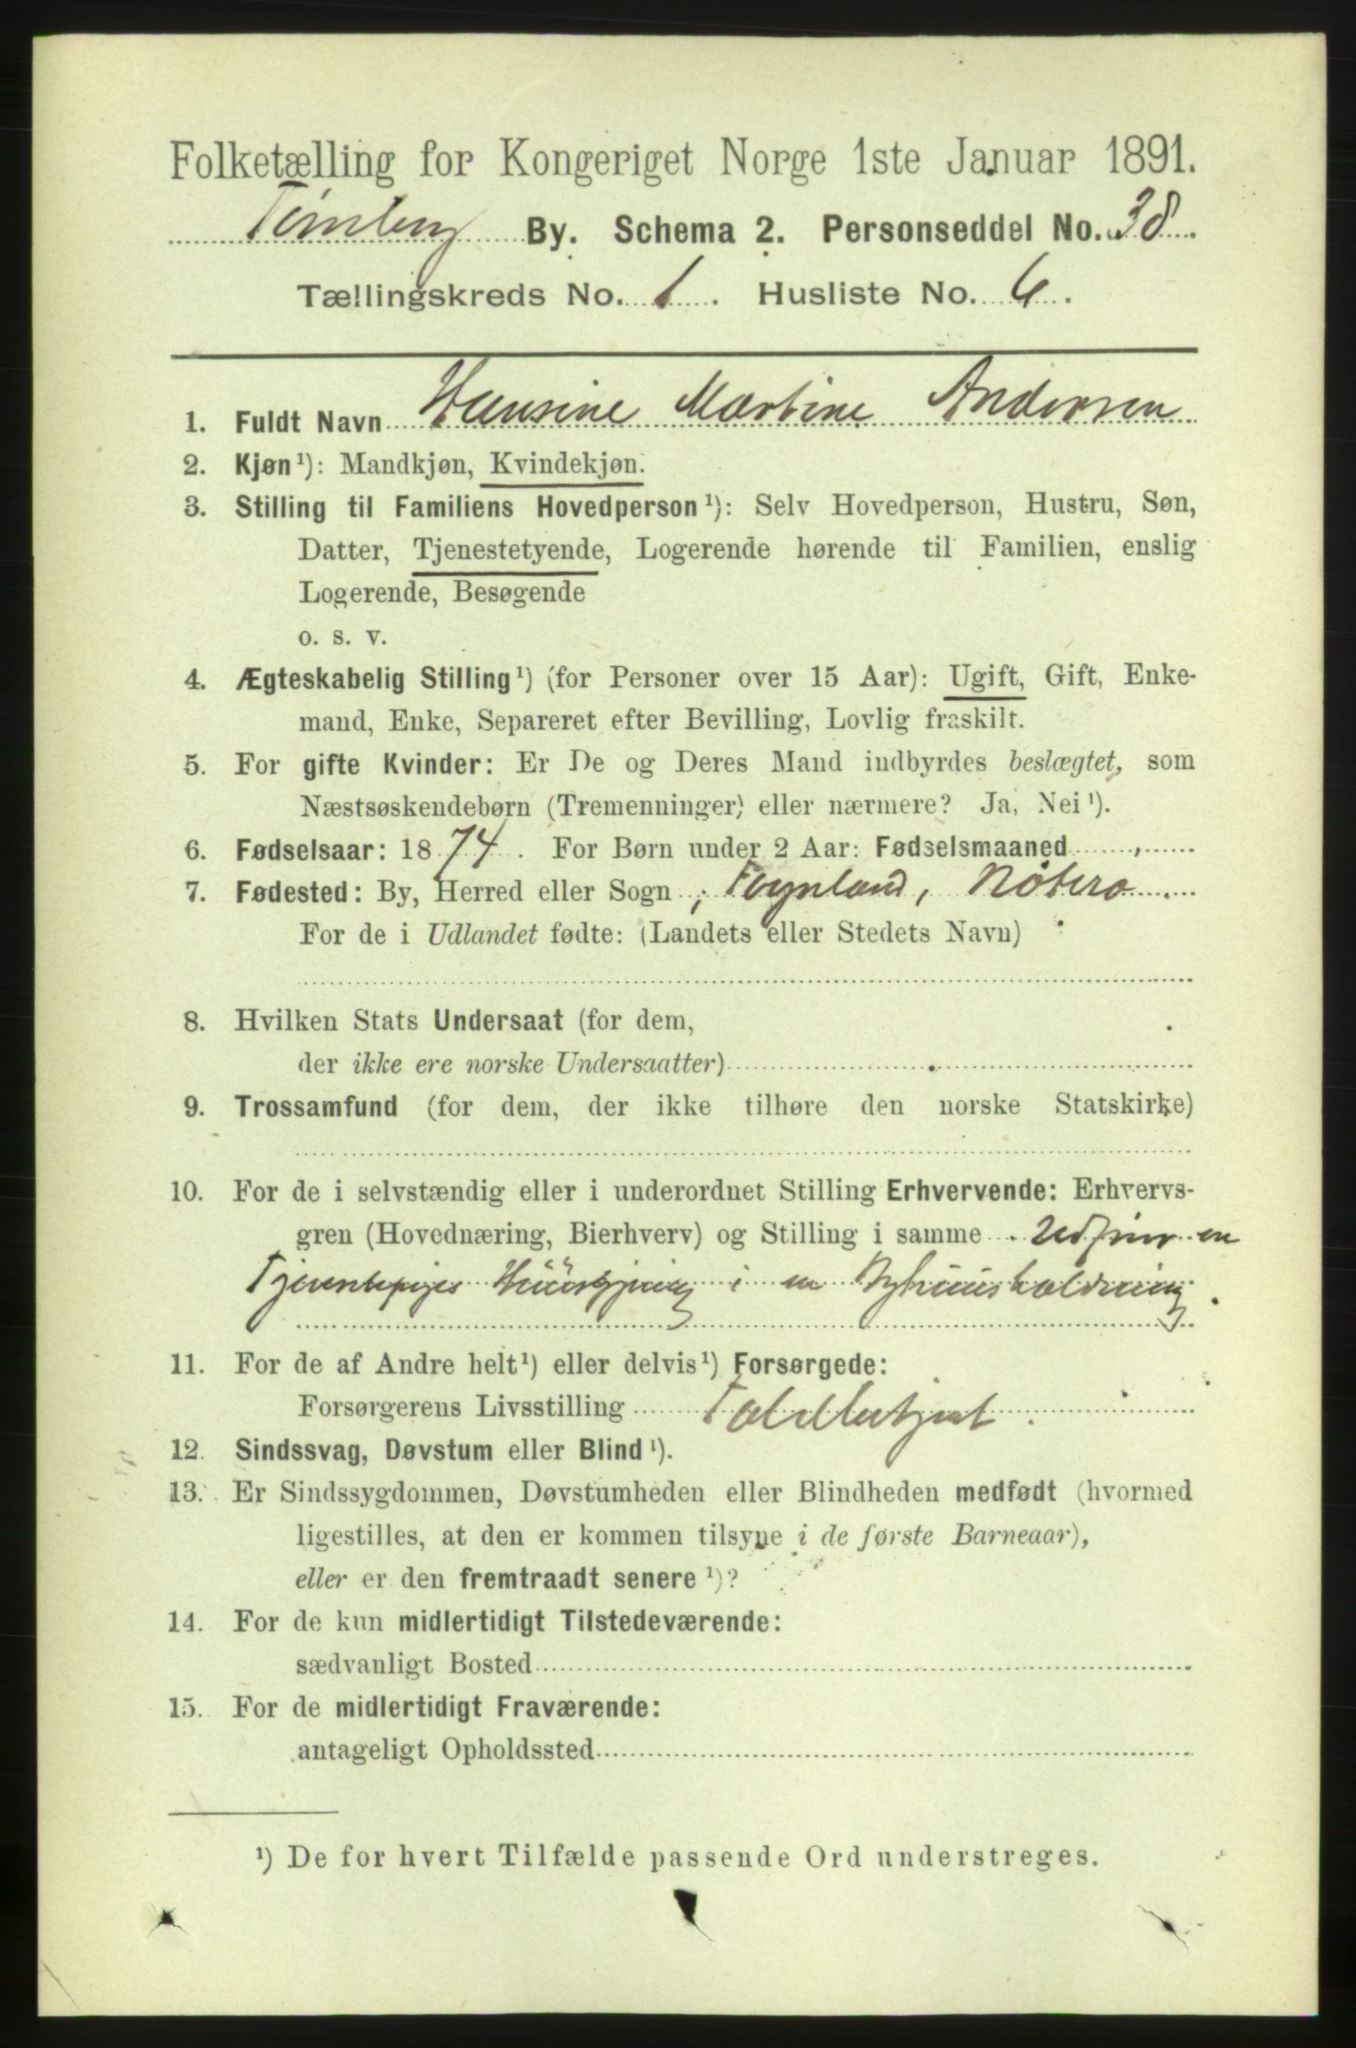 Folketælling for Kongeriget Norge 1ste Januar 1891.
Tønsberg By. Schema 2. Personseddel No. 38.
Tællingskreds No. 1. Husliste No. 6.
1. Fuldt Navn Hansine Martine Andersen
2. Kjøn ¹): Mandkjøn, Kvindekjøn.
3. Stilling til Familiens Hovedperson ¹): Selv Hovedperson, Hustru, Søn,
Datter, Tjenestetyende, Logerende hørende til Familien, enslig
Logerende, Besøgende
o. s. v.
4. Ægteskabelig Stilling ¹) (for Personer over 15 Aar): Ugift, Gift, Enke-
mand, Enke, Separeret efter Bevilling, Lovlig fraskilt.
5. For gifte Kvinder: Er De og Deres Mand indbyrdes beslægtet, som
Næstsøskendebørn (Tremenninger) eller nærmere? Ja, Nei ¹).
6. Fødselsaar: 1874. For Børn under 2 Aar: Fødselsmaaned
7. Fødested: By, Herred eller Sogn Føynland, Nøterø.
For de i Udlandet fødte: (Landets eller Stedets Navn)
8. Hvilken Stats Undersaat (for dem,
der ikke ere norske Undersaatter)
9. Trossamfund (for dem, der ikke tilhøre den norske Statskirke)
10. For de i selvstændig eller i underordnet Stilling Erhvervende: Erhvervs-
gren (Hovednæring, Bierhverv) og Stilling i samme Udfører en
Tjenestepiges Huusgjerning i en Byhuusholdning.
11. For de af Andre helt ¹) eller delvis ¹) Forsørgede:
Forsørgerens Livsstilling Toldbetjent.
12. Sindssvag, Døvstum eller Blind ¹).
13. Er Sindssygdommen, Døvstumheden eller Blindheden medfødt (hvormed
ligestilles, at den er kommen tilsyne i de første Barneaar),
eller er den fremtraadt senere ¹)?
14. For de kun midlertidigt Tilstedeværende:
sædvanligt Bosted
15. For de midlertidigt Fraværende:
antageligt Opholdssted
¹) De for hvert Tilfælde passende Ord understreges.